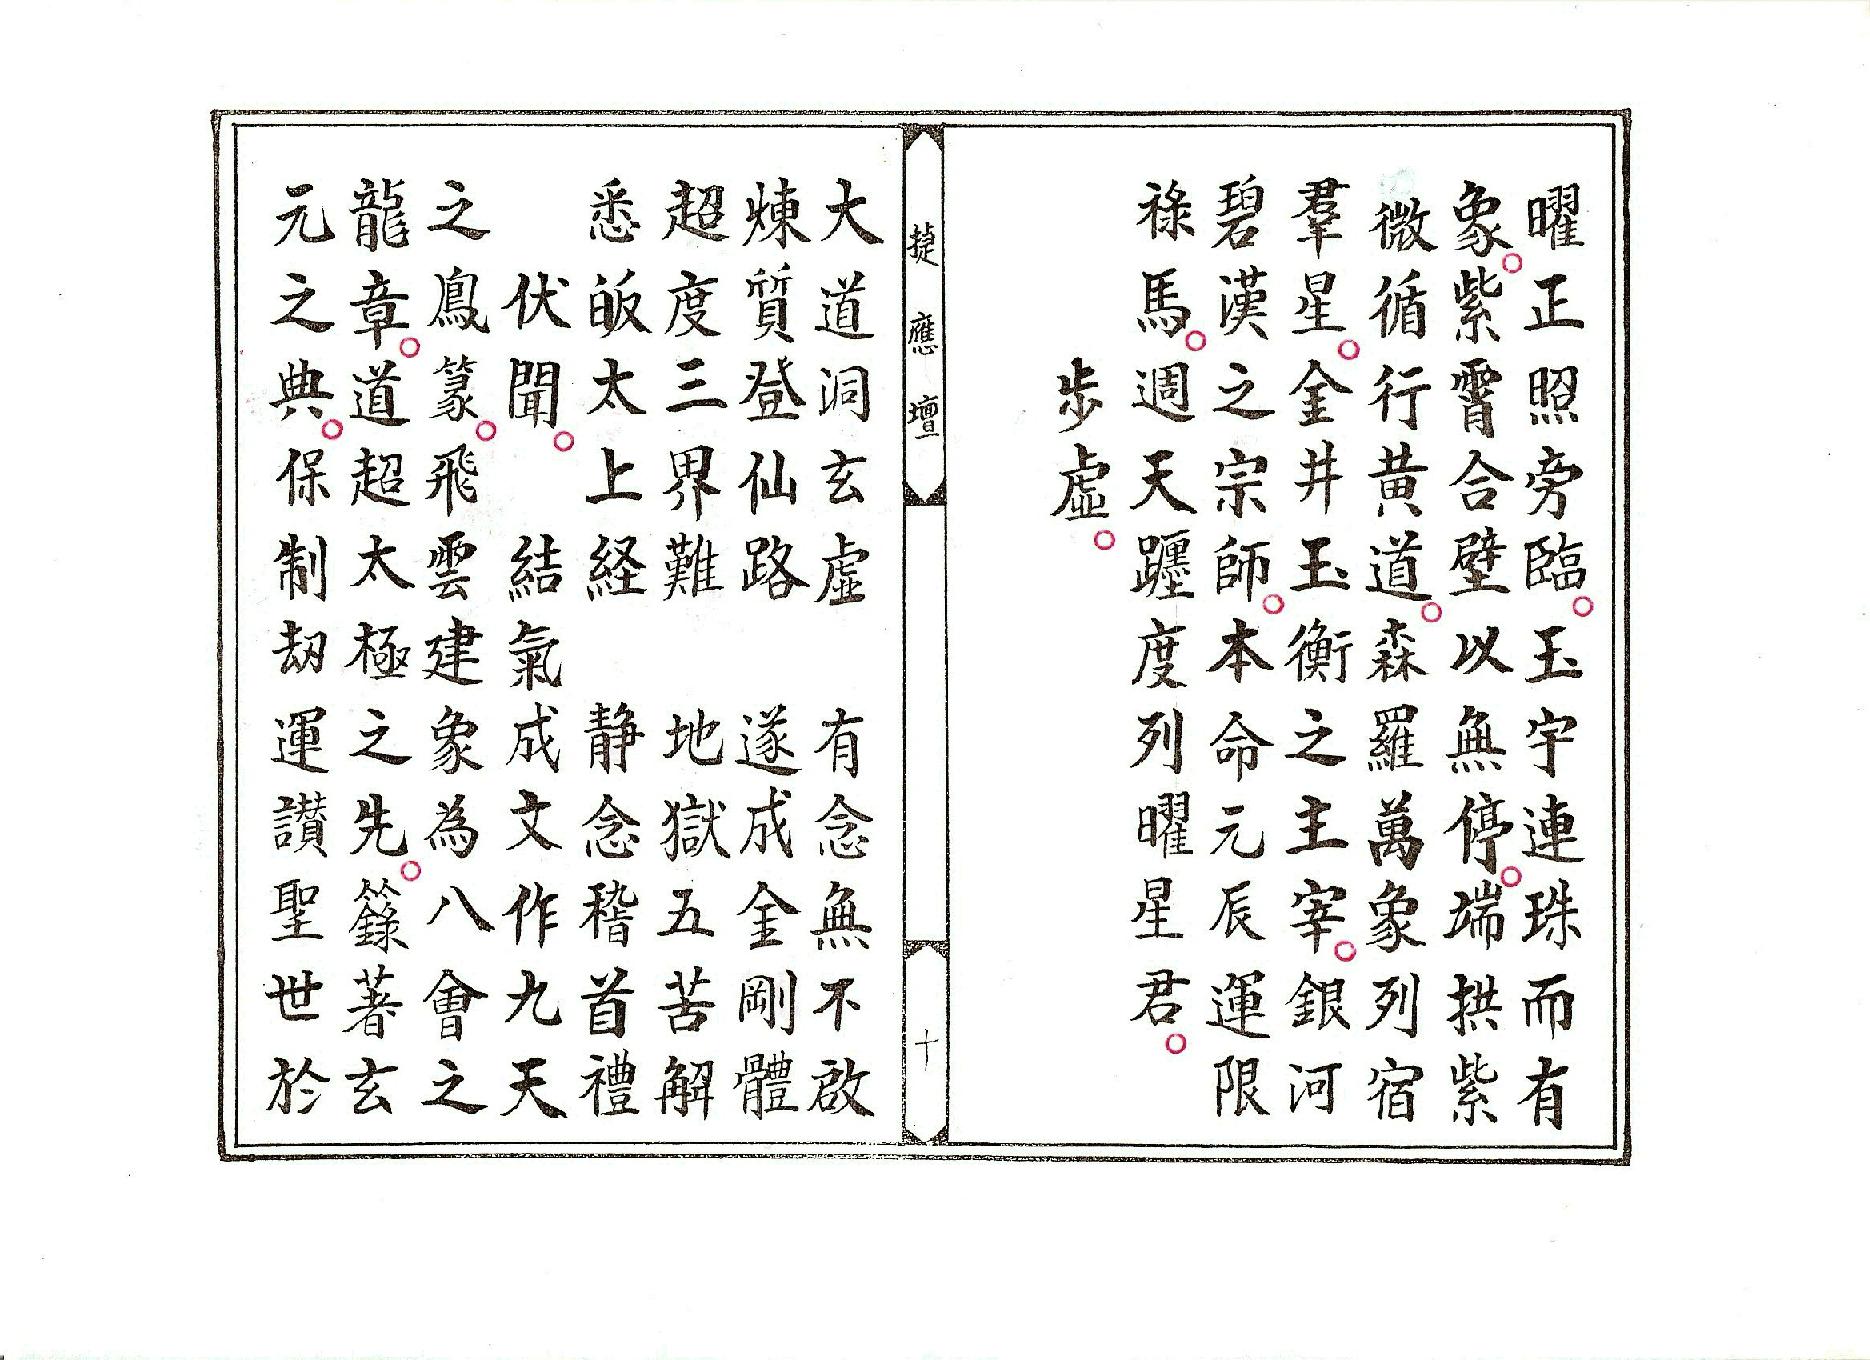 曜正照旁臨○玉宇連珠而有
象○紫霄合璧以無停○端拱紫
微循行黃道○森羅萬象列宿
羣星○金井玉衡之主宰○銀河
碧漢之宗師○本命元辰運限
祿馬○週天躔度列曜星君○
步虛○
捷應壇
十
大道洞玄虛　有念無不啟
煉質登仙路　遂成金剛體
超度三界難　地獄五苦解
悉皈太上経　静念稽首禮
伏聞○　結氣成文作九天
之鳳篆○飛雲建象為八會之
龍章○道超太極之先○籙著玄
元之典○保制劫運讃聖世於